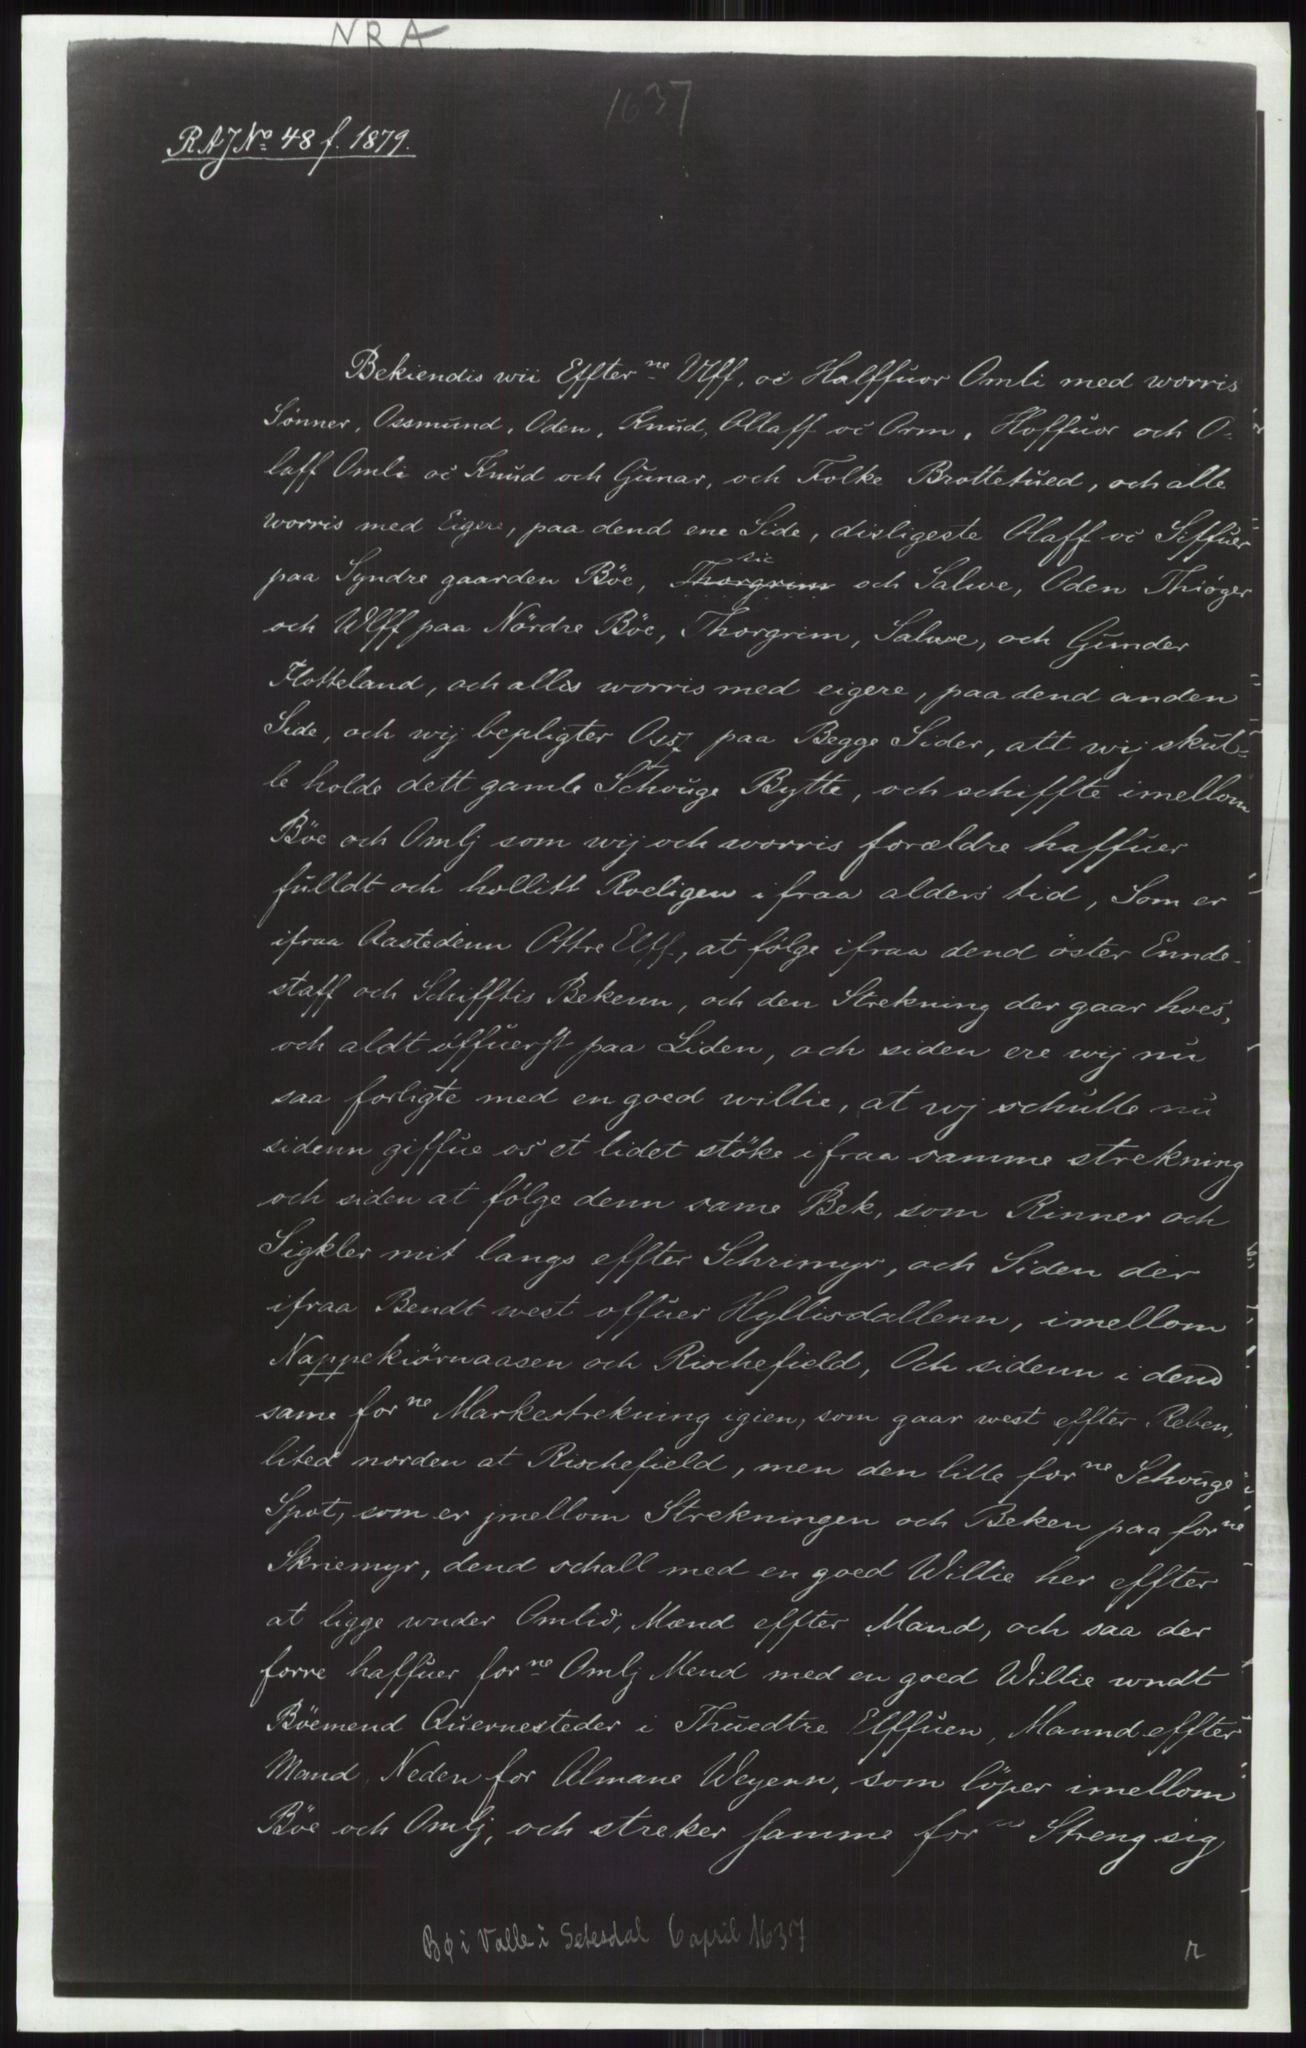 NRA
1637
RAJ No 48 f. 1879.
Bekiendis wii Effter ne Ulff, oc Halffuor Omli med worris
Sønner, Ossmund, Oden, Knud, Ollaff oc Orm, Hoffuor och O-
laff Omli oc Knud och Gunar, och Folke Brottetued, och alle
worris med Eigere, paa dend ene Side, disligeste Olaff oc Siffuer
sic
paa Syndre gaarden Böe, Thorgrim och Salwe, Oden Thiøger
och Wlff paa Nördre Böe, Thorgrim, Salwe, och Gunder
Flotteland, och allis worris med eigere, paa dend anden
Side, och wij bepligter Oss paa Begge Sider, att wij skul-
le holde dett gamle Schouge Bytte, och schiffte imellom
Böe och Omlj som wij och worris forældre haffuer
fulldt och hollitt Roeligen ifraa alders tid, Som er
ifraa Aastedenn Ottre Elff, at følge ifraa dend öster Ennde-
staff och Schifftis Bekenn, och den Strekning der gaar hoes,
och aldt öffuerst paa Liden, och siden ere wij nu
saa forligte med en goed willie, at wj schulle nu
sidenn giffue os et lidet stöke ifraa samme strekning
och siden at følge denn same Bek, som Rinner och
Sigkler mit langs effter Schrimyr, och Siden der
ifraa Bendt west offuer Hyllisdallenn, imellom
Nappekiörnaasen och Rischefield, Och sidenn i dend
same for ne Markestrekning igien, som gaar west effter Reben,
lited norden at Rischefield, men den lille for ne Schouge
Spot, som er jmellom Strekningen och Beken paa for ne
Skriemyr, dend schall med en goed Willie her effter
at ligge wnder Omlid, Mænd effter Mand, och saa der
forre haffuer for ne Omlj Mend med en goed Willie wndt
Böemend Quernesteder i Thuedtre Elffuen, Mannd effter
Mand, Neden for Almane Weyenn, som löper imellom
Böe och Omlj, och streker samme for ne Streng sig
Bø i Valle i Setesdal 6 april 1637